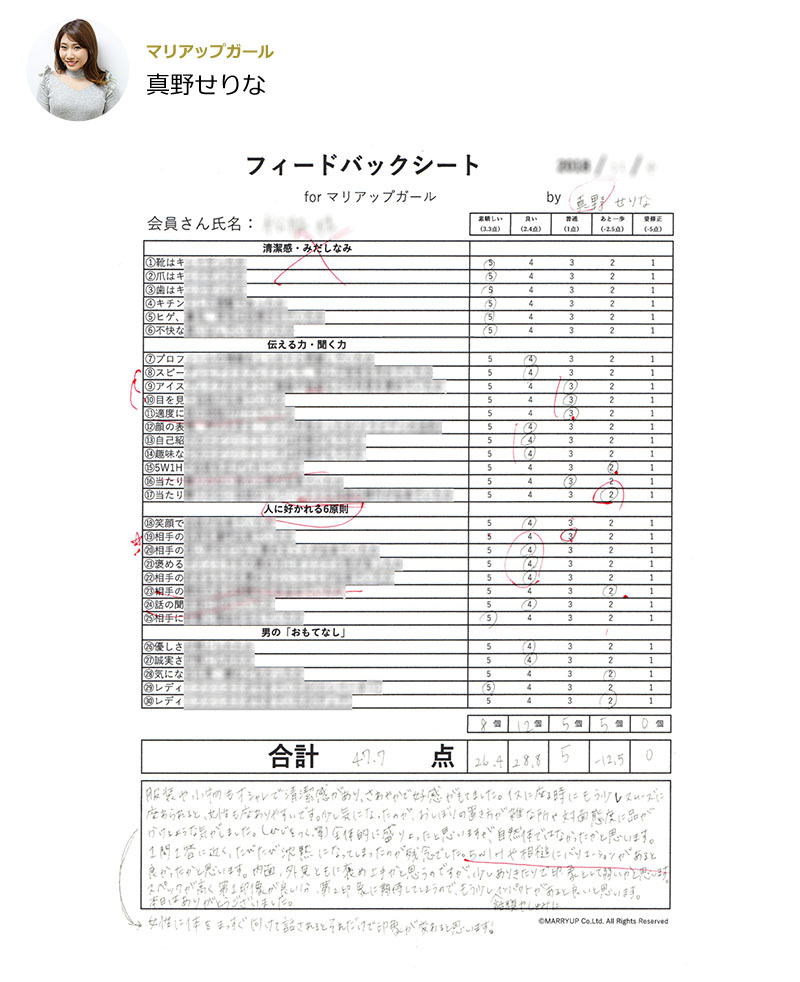 マリアップガール
真野せりな
フィードバックシート
2018 / /
for マリアップガール
by 真野せりな
会員さん氏名：
素晴しい 良い 普通 あと一歩 要修正
(3.3点) (2.4点) (1点) (-2.5点) (-5点)
清潔感・みだしなみ
①靴はキ 5 4 3 2 1
②爪はキ 5 4 3 2 1
③歯はキ 5 4 3 2 1
④キチン 5 4 3 2 1
⑤ヒゲ、 5 4 3 2 1
⑥不快な 5 4 3 2 1
伝える力・聞く力
⑦プロフ 5 4 3 2 1
⑧スピー 5 4 3 2 1
⑨アイス 5 4 3 2 1
⑩目を見 5 4 3 2 1
⑪適度に 5 4 3 2 1
⑫顔の表 5 4 3 2 1
⑬自己紹 5 4 3 2 1
⑭趣味な 5 4 3 2 1
⑮5W1H 5 4 3 2 1
⑯当たり 5 4 3 2 1
⑰当たり 5 4 3 2 1
人に好かれる6原則
⑱笑顔で 5 4 3 2 1
⑲相手の 5 4 3 2 1
⑳相手の 5 4 3 2 1
㉑褒める 5 4 3 2 1
㉒相手の 5 4 3 2 1
㉓相手の 5 4 3 2 1
㉔話の聞 5 4 3 2 1
㉕相手に 5 4 3 2 1
男の「おもてなし」
㉖優しさ 5 4 3 2 1
㉗誠実さ 5 4 3 2 1
㉘気にな 5 4 3 2 1
㉙レディ 5 4 3 2 1
㉚レディ 5 4 3 2 1
8個 12個 5個 5個 0個
合計 47.7 点 26.4 28.8 5 -12.5 0
服装や小物もオシャレで清潔感があり、さわやかで好感がもてました。イスに座る時にもう少しスムーズに
座られると、女性も座りやすいです。少し気になったのが、おしぼりの置き方が雑な所や対面態度に品が
かけるような気がしました。(ひじをつく、等)全体的に盛り上ったと思いますが自然体ではなかったかと思います。
1問1答に近く、たびたび沈黙になってしまったのが残念でした。5W1Hや相槌にバリエーションがあると
良かったかと思います。内面、外見ともに褒め上手かと思うのですが、少しありきたりで印象として弱いかと思います。
スペックが高く第1印象が良い分、第2印象に期待してしまうので、もう少しインパクトがあると良いと思います。
本日はありがとうございました。
©MARRYUP Co.Ltd. All Rights Reserved
女性に体をまっすぐ向けて話されるとそれだけで印象が変わると思います。